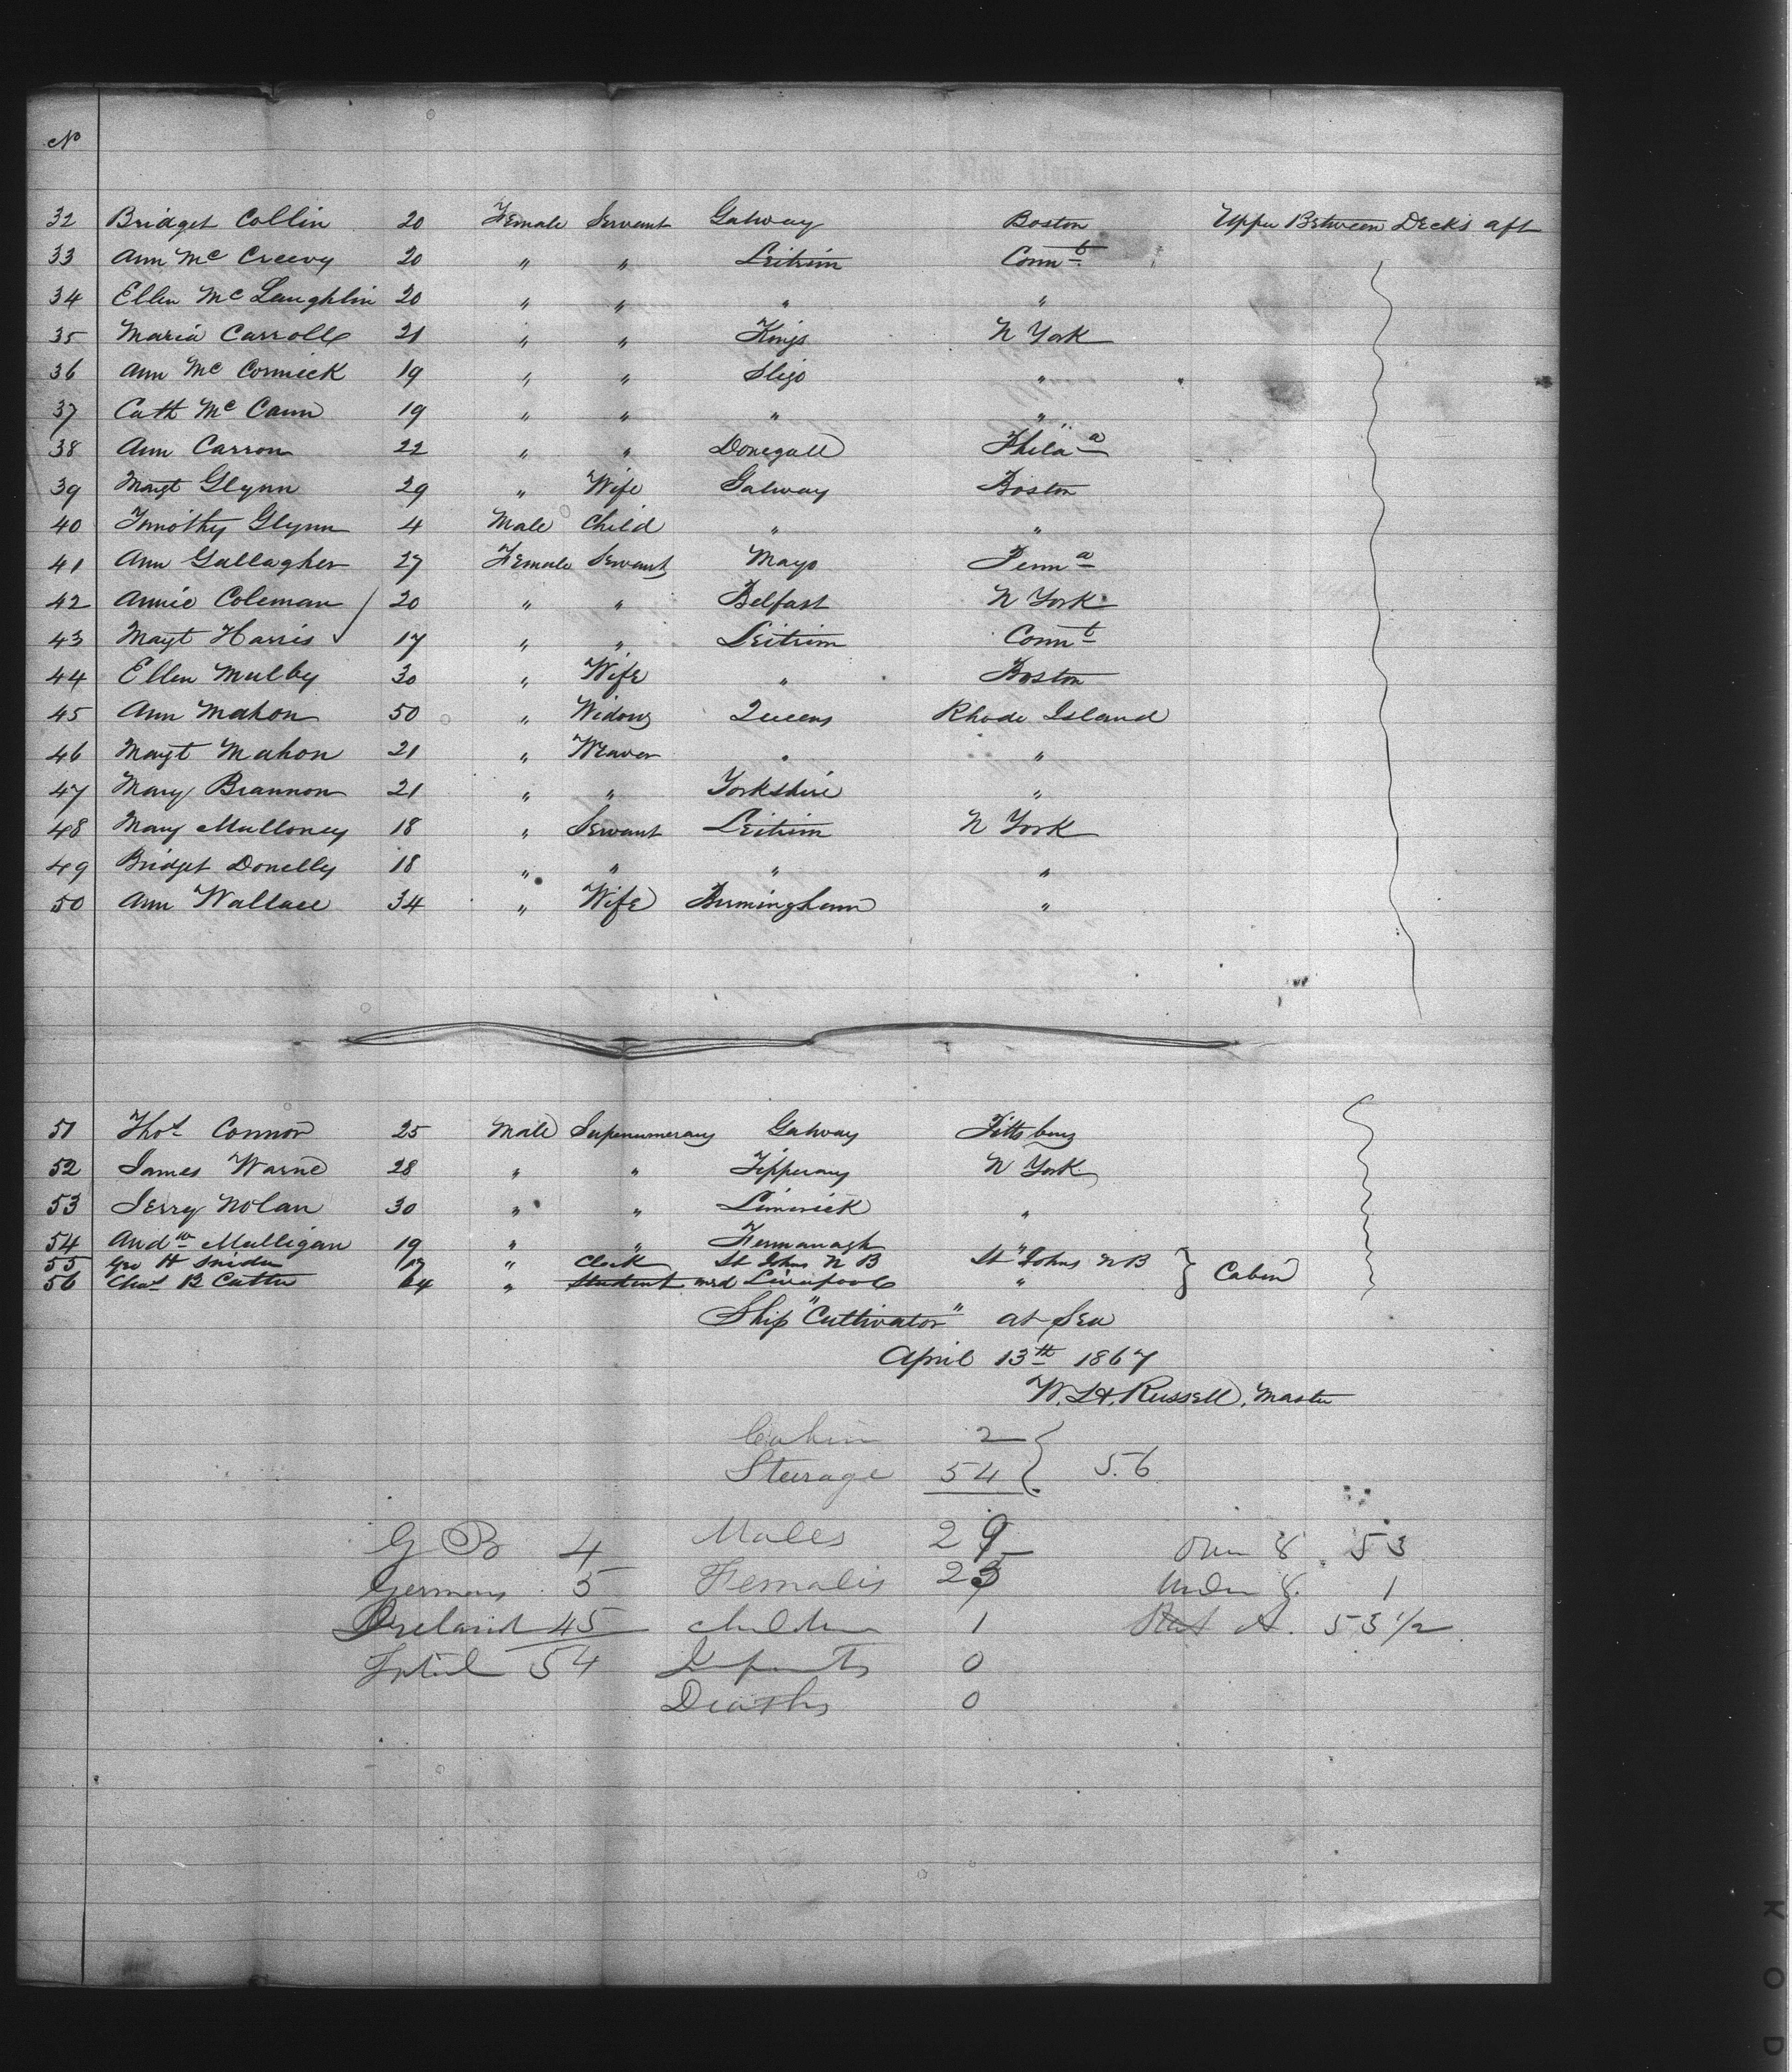 No
32 Bridget Collin 20 Female Servant Galway Boston Upper Between Decks aft
33 Ann Mc Creevy 20 " " Leitrim Connt
34 Ellen Mc Laughlin 20 " " " "
35 Maria Carroll 21 " " Kings N York
36 Ann Mc Cormick 19 " " Sligo "
37 Cath Mc Cann 19 " " " "
38 Ann Carron 22 " " Donegall Phila a
39 Magt Glynn 29 " Wife Galway Boston
40 Timothy Glynn 4 Male Child " "
41 Ann Gallagher 27 Female Servant Mayo Penna
42 Annie Coleman 20 " " Belfast N York
43 Magt Harris 17 " " Leitrim Connt
44 Ellen Mulby 30 " Wife " Boston
45 Ann Mahon 50 " Widow Queens Rhode Island
46 Magt Mahon 21 " Weaver " "
47 Mary Brannon 21 " " Yorkshire "
48 Mary Mulloney 18 " Servant Leitrim N York
49 Bridget Donelly 18 " " " "
50 Ann Wallace 34 " Wife Birmingham "
51 Thos Connor 25 Male Supernumerary Galway Pittsburg
52 James Warne 28 " " Tipperary N York
53 Jerry Nolan 30 " " Limerick "
54 Andw Mulligan 19 " " Fermanagh "
55 Geo H Snider 19 " Clerk St Johns N B St Johns N B } Cabin
56 Chas B Cutter 24 " Student med Liverpool "
Ship "Cultivator" at Sea
April 13th 1867
W. H. Russell, Master
Cabin 2
Steerage 54 } 56
G B 4 Males 29 Over 8 53
Germany 5 Females 25 Under 8 1
Ireland 45 Children 1 Stat A. 53 1/2
Total 54 Infants 0
Deaths 0
K O D